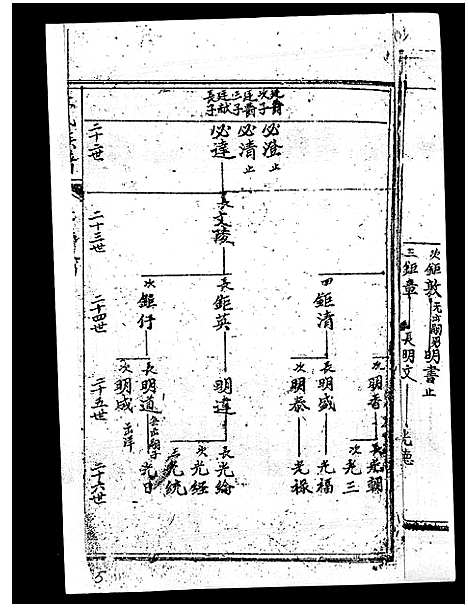 次 鉅敦 明書 止
三 鉅章 長 明文 光德
次子 必澄 止
三子 必清 止
長子 必達
二十二世
長 文陵
二十三世
四 鉅清
長 鉅英
次 鉅仔
二十四世
次 明香
長 明盛
次 明泰
明達
長 明道
次 明成 出洋
二十五世
長 光朝
次 光三
光福
光祿
長 光綸
次 光經
三 光統
光日
二十六世
5